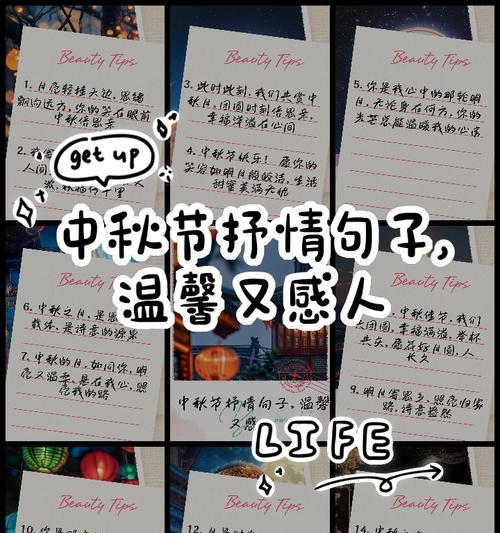 Beauty Tips
1. 月亮轻挂天边，思绪
飘向远方，你的笑在眼前
中秋倍思亲
2.
人间
Beauty Tips
3. 此时此刻，我们共赏中
秋月，团圆时刻倍思亲，
幸福洋溢在心间
4. 中秋节快乐！愿你的
笑容如明月般皎洁，生活
甜蜜美满无忧
Beauty Tips
5. 你是我心中的那轮明
月，无论身在何方，你的
光芒总能温暖我的心房
get up
中秋节抒情句子，
温馨又感人
Beauty Tips
6. 中秋之月，是思
载体，是诗意的源泉
7. 中秋的月，如同你，明
亮又温柔，悬在我心，照
亮我的路
中秋节抒情句子，温馨
又感
Beauty Tips
中秋佳节，我们
团圆，幸福满溢，举杯
共乐，愿花好月圆，人
长久
9. 明月寄思乡，照亮归家
路，诗意盎然
LIFE
Beauty Tips
10.
Beauty Tips
12.
Beauty Tips
14.